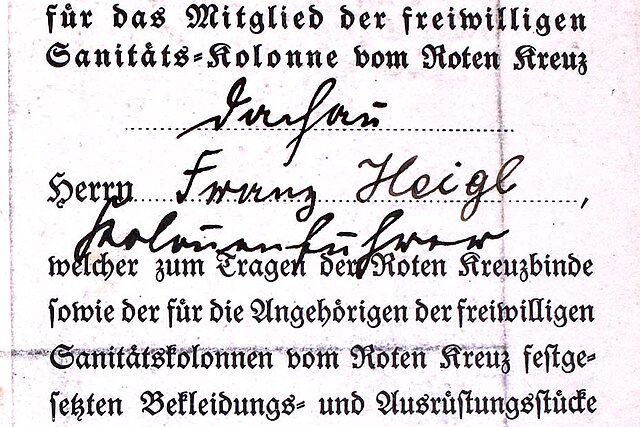 für das Mitglied der freiwilligen
Sanitäts-Kolonne vom Roten Kreuz
Dachau
Herrn Franz Heigl,
Kolonnenführer
welcher zum Tragen der Roten Kreuzbinde
sowie der für die Angehörigen der freiwilligen
Sanitätskolonnen vom Roten Kreuz festge-
setzten Bekleidungs- und Ausrüstungsstücke